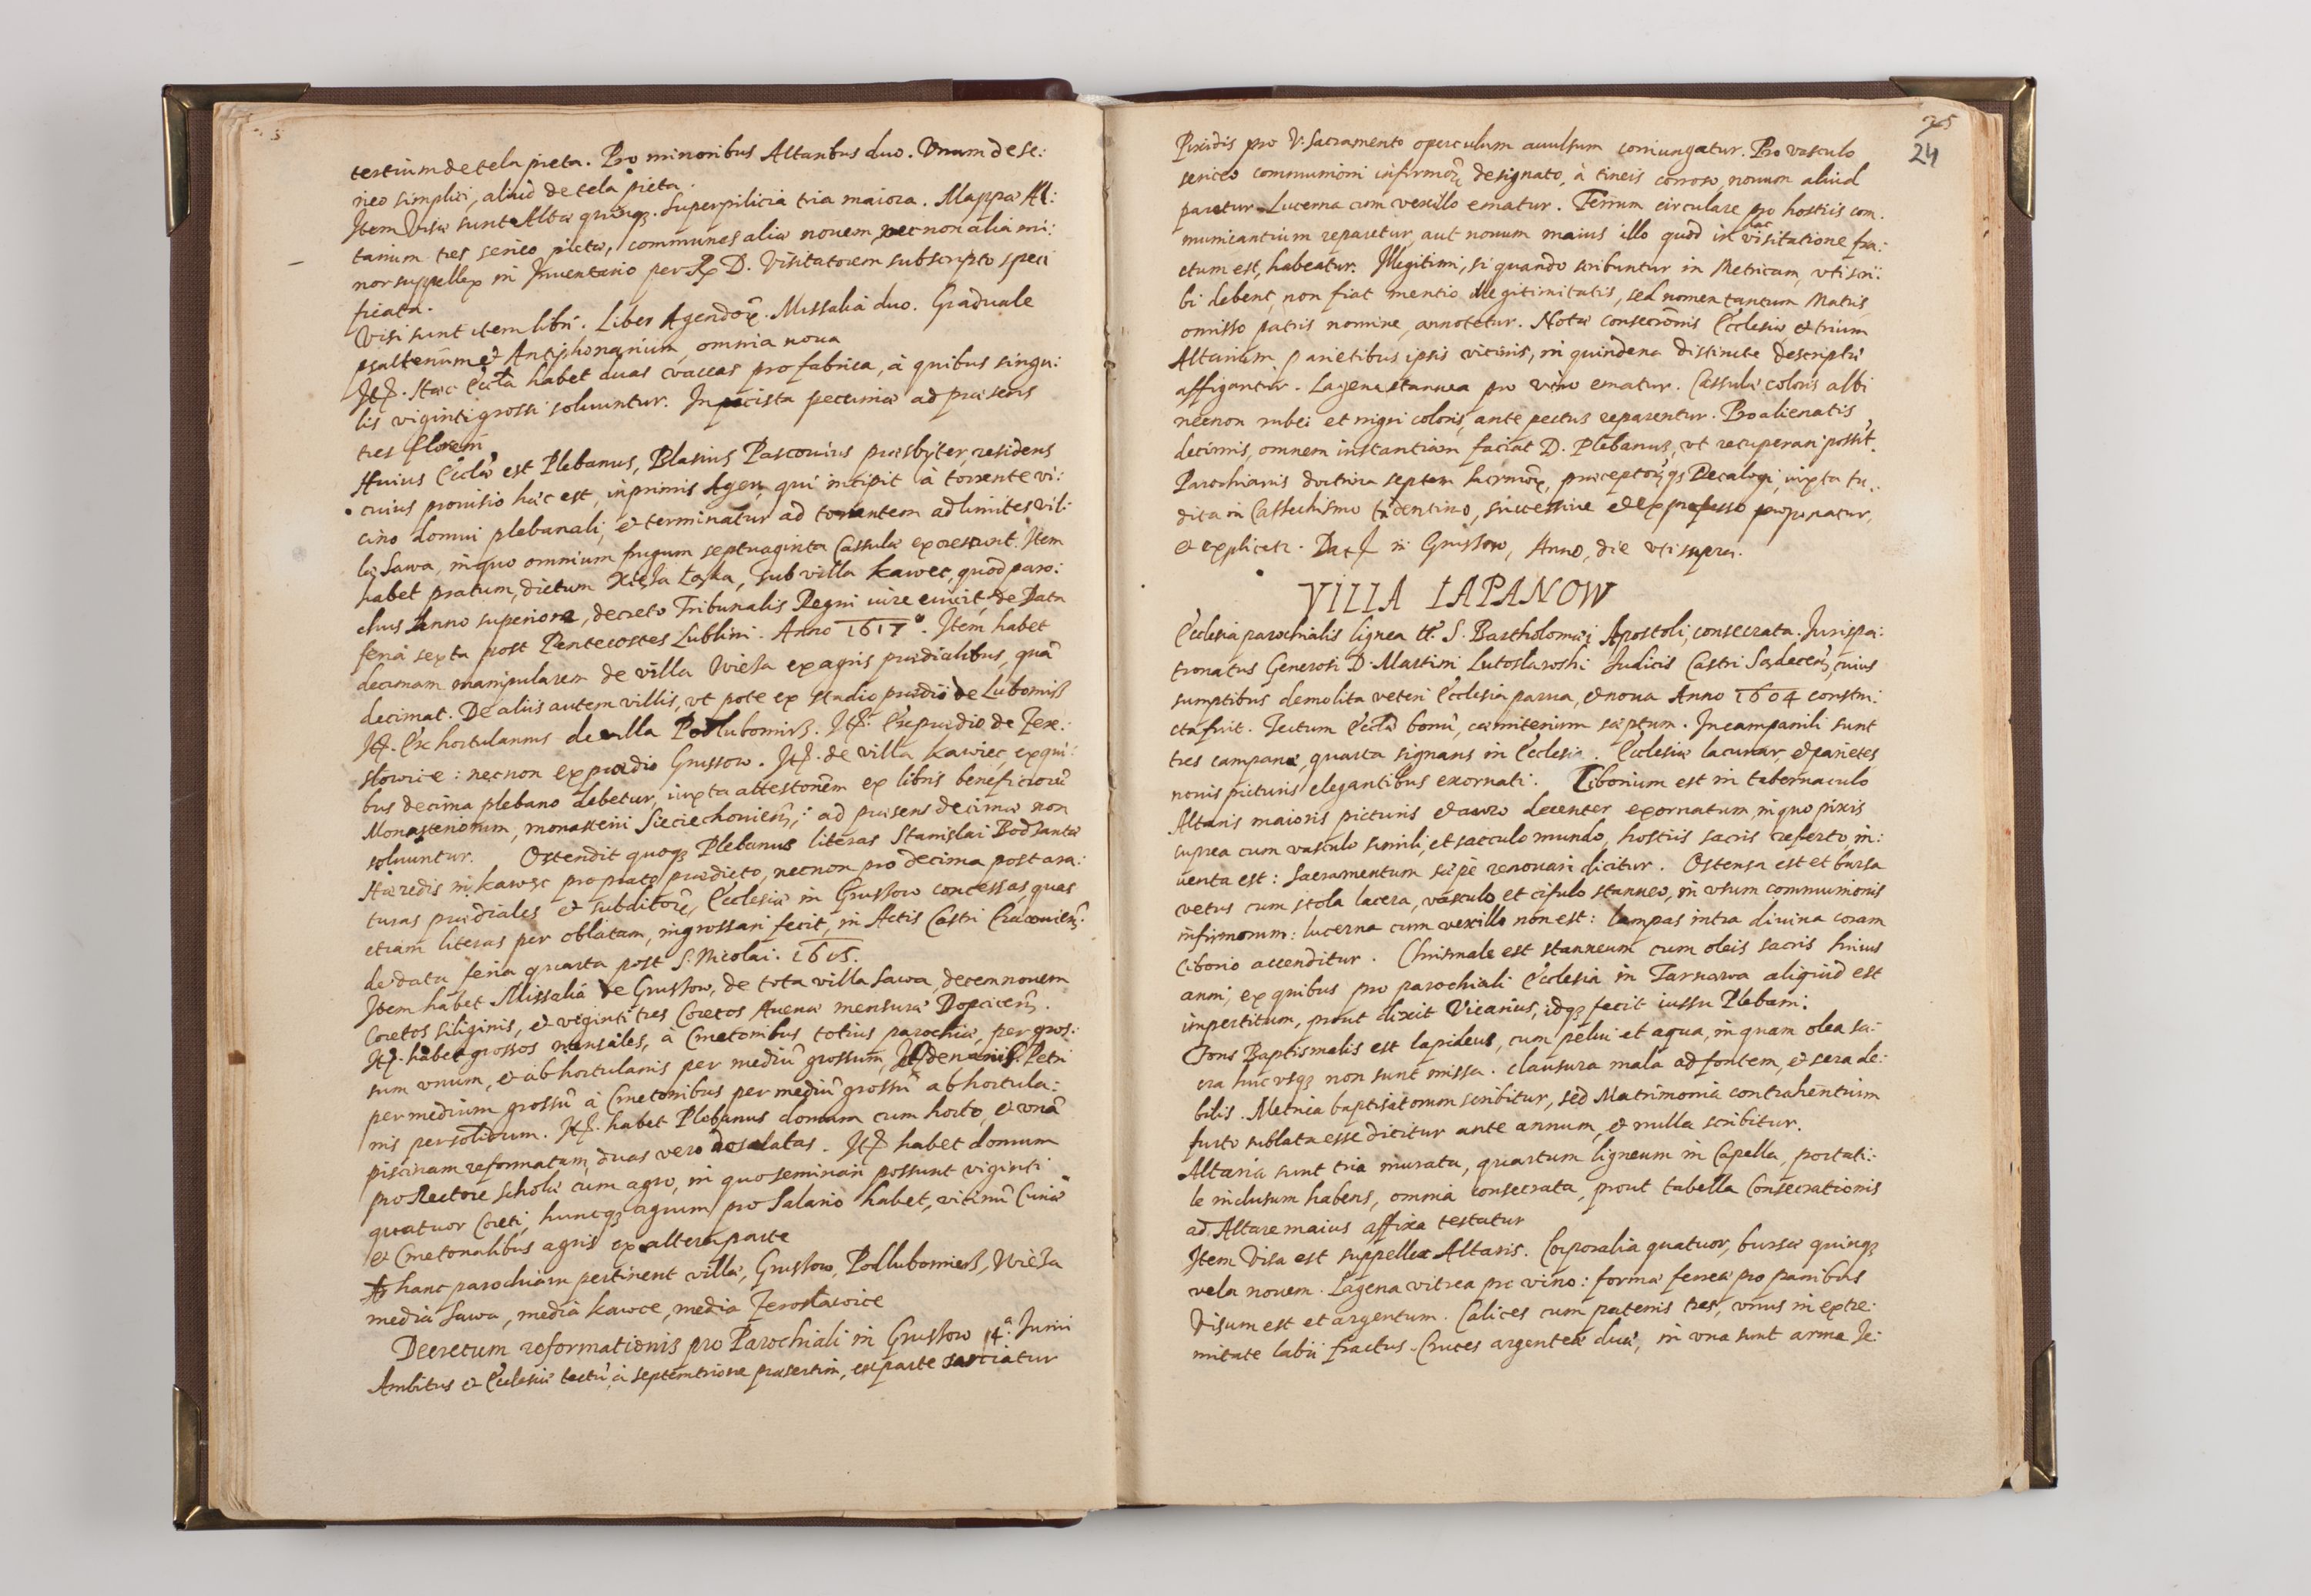 tertium de tela picta. Pro minoribus Altaribus duo. Vnum de se:
rico simplici, aliud de tela picta.
Item Visa sunt Alba quinq3. Superpilicia tria maiora. Mappæ Al:
tarium tres serico pictæ, communes aliæ nouem, necnon alia mi:
nor suppellex in Inuentario per D. Visitatorem subscripto speci
ficata.
Visi sunt item libri. Liber Agendor. Missalia duo. Graduale
psalterium et Antiphonarium, omnia noua
It. Hæc Eccla habet duas vaccas pro fabrica, à quibus singu:
lis viginti grossi soluuntur. In pæcista pecuniæ ad præsens
tres floreni
Huius Ecclæ est Plebanus, Blasius Pascouius præsbyter, residens
cuius prouisio hæc est, inprimis Ager, qui incipit à torrente vi:
cino domui plebanali, et terminatur ad torrentem ad limites vil:
læ Sawa, in quo omnium frugum septuaginta Cassulæ excrescunt. Item
habet pratum, dictum Xięża Łąka, sub villa Kawec, quod paro:
chus Anno superiore, decreto Tribunalis Regni iure euicit, de Data
feria sexta post Pentecostes Lublini. Anno 1617. Item habet
decimam manipularem de villa Wieża ex agris prædialibus, quā
decimat. De aliis autem villis, vt pote ex stadio prædii de Lubomiß
It. Ex hortulanus de villa Podlubomirß. It. Ex prædio de Jere:
slowice: necnon ex prædio Grussow. It. de villa Kawiec, ex qui:
bus decima plebano debetur, iuxta attestonem ex libris beneficiorū
Monasteriorum, monasterii Sieciechouien: ad præsens decimæ non
soluuntur. Ostendit quoq3 Plebanus literas Stanislai Bodzanta
Hæredis in Kawec pro prato prædicto, necnon pro decima post ara:
turas prædiales et subditor, Ecclesiæ in Grussow concessas, quas
etiam literas per oblatam, ingrossari fecit, in Actis Castri Cracouien.
de data feria quarta post S. Nicolai. 1615.
Item habet Missalia de Grussow, de tota villa Sawa, decem nouem
Coretos siliginis, et viginti tres Coretos Auenæ mensuræ Dopcicen.
It. habet grossos mensales, à Cmetonibus totius parochiæ, per gros:
sum vnum, et ab hortulanis per mediū grossum, It denarii S. Petri
per medium grossū à Cmetonibus per mediū grossū ab hortula:
nis per solidum. It. habet Plebanus domum cum horto, et vnā
piscinam reformatam, duas vero desolatas. It habet domum
pro Rectore scholæ cum agro, in quo seminari possunt viginti
quatuor Coreti, huncq3 agrum pro Salario habet, vicinū Curiæ
et Cmetonalibus agris ex altera parte
Ad hanc parochiam pertinent villæ, Grussow, Podlubomierß, Wieża
media Sawa, media Kawce, media Jerosławice
Decretum reformationis pro Parochiali in Grussow 14.a Junii
Ambitus et Ecclesiæ tectū, à septemtrione præsertim, ex parte sarciatur
25
24
Pixidis pro V. Sacramento operculum auulsum coniungatur. Pro vasculo
sericeo communioni infirmor designato, à tineis corroso, nouum aliud
paretur. Lucerna cum vexillo ematur. Ferrum circulare pro hostiis com.
municantium reparetur, aut nouum maius illo quod in hac visitatione fra:
ctum est, habeatur. Illegitimi, si quando scribuntur in Metricam, vti scri:
bi debent, non fiat mentio illegitimitatis, sed nomen tantum Matris
omisso patris nomine, annotetur. Notæ consecrōnis Ecclesiæ et trium
Altarium parietibus ipsis vicinis, in quindena distincte descriptæ
affigantur. Lagena stannea pro vino ematur. Cassulæ coloris albi
necnon rubei et nigri coloris, ante pectus reparentur. Pro alienatis
decimis, omnem instantiam faciat D. Plebanus, vt recuperari possit.
Parochianis doctrina septem Sacrmōr, præceptor q3 Decalogi, iuxta tra
dita in Cathechismo tridentino, successiue et ex professo proponatur,
et explicetr. Dat in Grussow, Anno, die vti supra.
VILLA ŁAPANOW
Ecclesia parochialis lignea tt. S. Bartholomæi Apostoli, consecrata. Iurispa:
tronatus Generosi D. Martini Lutosławski Judicis Castri Sądecen, cuius
sumptibus demolita veteri Ecclesia parua, et noua Anno 1604 constru:
cta fuit. Tectum Ecclæ bonū, cæmiterium sæptum. In campanili sunt
tres campanæ, quarta signans in Ecclesia. Ecclesiæ lacunar, et parietes
nouis picturis elegantibus exornati. Ciborium est in tabernaculo
Altaris maioris picturis et auro decenter exornatum, in quo pixis
cuprea cum vasculo simili, et sacculo mundo, hostiis sacris referto, in:
uenta est: Sacramentum sæpè renouari dicitur. Ostensa est et bursa
vetus cum stola lacera, vasculo et cifulo stanneo, in vsum communionis
infirmorum: lucerna cum vexillo non est: lampas intra diuina coram
Ciborio accenditur. Chrismale est stanneum cum oleis sacris huius
anni, ex quibus pro parochiali Ecclesia in Tarnawa aliquid est
impertitum, prout dixit Vicarius, idq3 fecit iussu Plebani.
Fons Baptismalis est lapideus, cum pelui et aqua, in quam olea sa:
cra huc vsq3 non sunt missa. clausura mala ad fontem, et sera de:
bilis. Metrica baptisatorum scribitur, sed Matrimonia contrahentium
furto sublata esse dicitur ante annum, et nulla scribitur.
Altaria sunt tria murata, quartum ligneum in Capella, portati:
le inclusum habens, omnia consecrata, prout tabella Consecrationis
ad Altare maius affixa testatur
Item Visa est suppellex Altaris. Corporalia quatuor, bursæ quinq3
vela nouem. Lagena vitrea pro vino: forma ferrea pro panibus
Visum est et argentum. Calices cum patenis tres, vnus in extre:
mitate labii fractus. Cruces argenteæ duæ, in vna sunt arma Je: